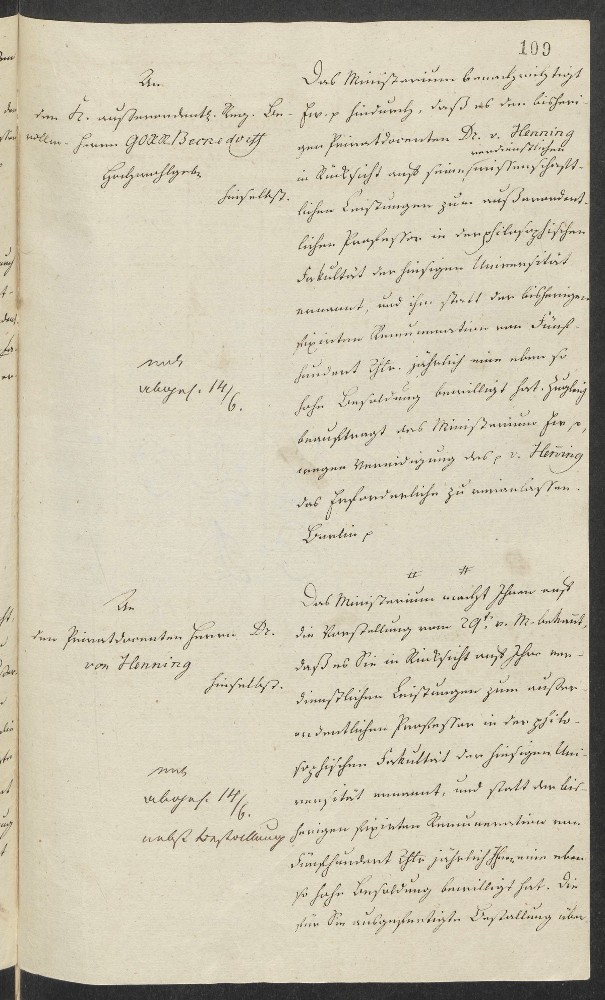 109
An
den K. außerordentl. Reg. Be-
vollm. Herrn GORR. Beckedorff
Hochwohlgeb.
hieselbst.
mund.
abges. 14/6.
Das Ministerium benachrichtigt
Ew. p hiedurch, daß es den bisheri-
gen Privatdocenten Dr. v. Henning
in Rücksicht auf seine verdienstlichen wissenschaft-
lichen Leistungen zum außerordent-
lichen Professor in der philosophischen
Fakultät der hiesigen Universität
ernannt, und ihm statt der bisherigen
fixirten Remuneration von Fünf-
hundert Thlr. jährlich eine eben so
hohe Besoldung bewilligt hat. Zugleich
beauftragt das Ministerium Ew. p,
wegen Vereidigung des p v. Henning
das Erforderliche zu veranlassen.
Berlin p
An
den Privatdocenten Herrn Dr.
von Henning
hieselbst.
mund.
abges. 14/6.
nebst Bestallung
Das Ministerium macht Ihnen auf
die Vorstellung vom 29t. v. M. bekannt,
daß es Sie in Rücksicht auf Ihre ver-
dienstlichen Leistungen zum außer-
ordentlichen Professor in der philo-
sophischen Fakultät der hiesigen Uni-
versität ernannt, und statt der bis-
herigen fixirten Remuneration von
Fünfhundert Thlr jährlich Ihnen eine eben
so hohe Besoldung bewilligt hat. Die
für Sie ausgefertigte Bestallung über